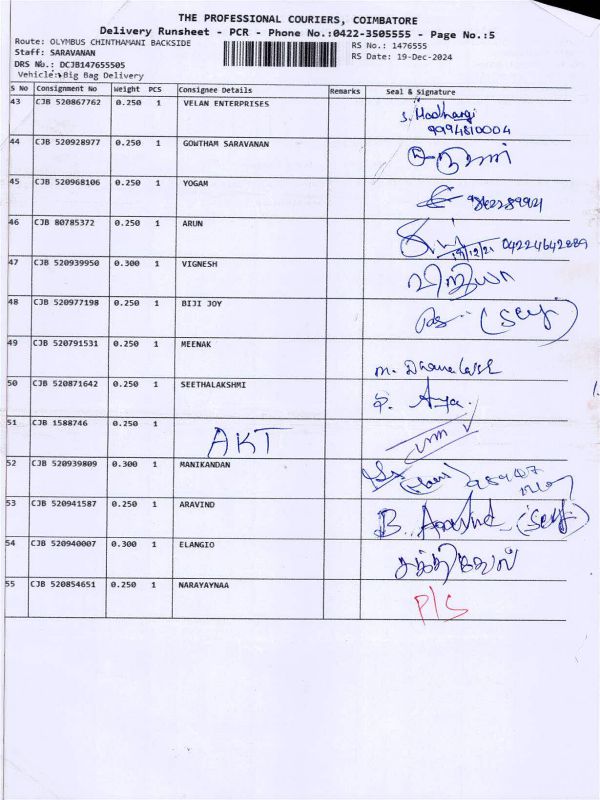 THE PROFESSIONAL COURIERS, COIMBATORE
Delivery Runsheet - PCR - Phone No.:0422-3505555 - Page No.:5
Route: OLYMBUS CHINTHAMANI BACKSIDE
RS No.: 1476555
Staff: SARAVANAN
RS Date: 19-Dec-2024
DRS No.: DCJB147655505
Vehicle: Big Bag Delivery
S No Consignment No Weight PCS Consignee Details Remarks Seal & Signature
43 CJB 520867762 0.250 1 VELAN ENTERPRISES
9994810004
44 CJB 520928977 0.250 1 GOWTHAM SARAVANAN
45 CJB 520968106 0.250 1 YOGAM
46 CJB 80785372 0.250 1 ARUN
04224642889
47 CJB 520939950 0.300 1 VIGNESH
48 CJB 520977198 0.250 1 BIJI JOY (Scy)
49 CJB 520791531 0.250 1 MEENAK
50 CJB 520871642 0.250 1 SEETHALAKSHMI
51 CJB 1588746 0.250 1 AKT
52 CJB 520939809 0.300 1 MANIKANDAN
53 CJB 520941587 0.250 1 ARAVIND B. Aravind (Scy)
54 CJB 520940007 0.300 1 ELANGIO சக்திவேல்
55 CJB 520854651 0.250 1 NARAYAYNAA P/S